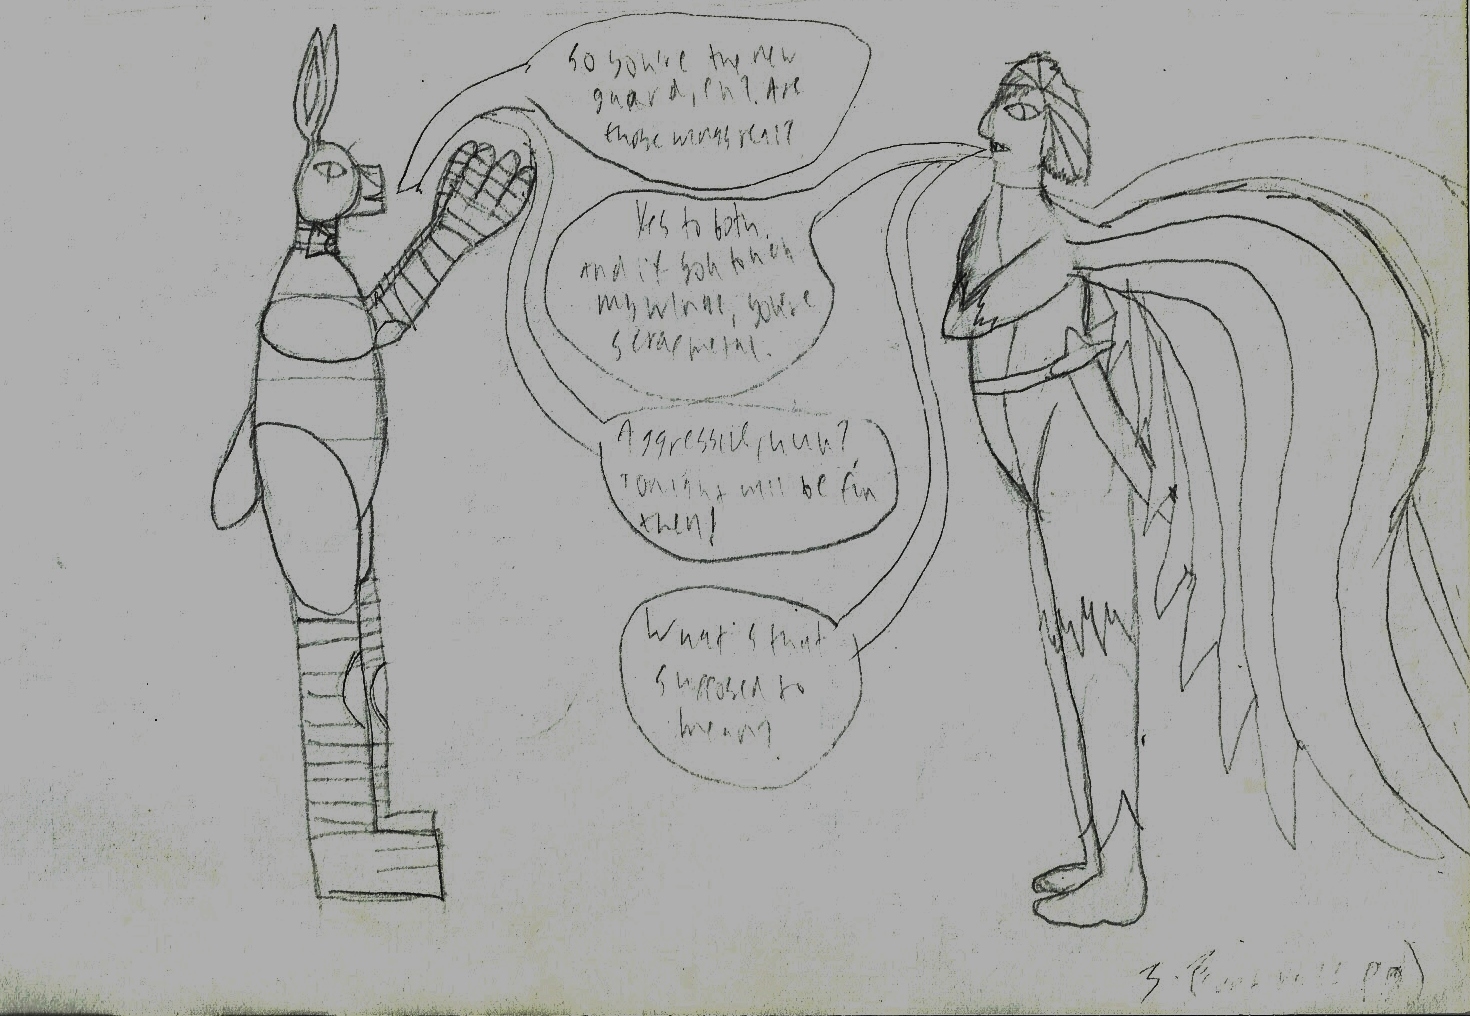 So you're the new
guard, eh? Are
those wings real?
Yes to both.
And if you touch
my wings, you're
scrap metal.
Aggressive, huh?
Tonight will be fun
then!
What's that
supposed to
mean?